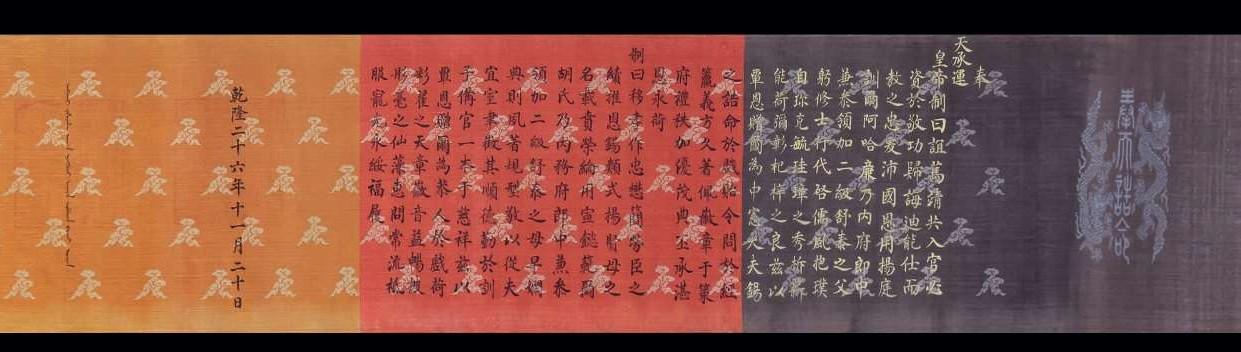 奉天誥命
奉
天承運
皇帝制曰誼篤靖共入官必
資於敬功歸誨迪能仕而
教之忠爰沛國恩用揚庭
訓爾阿哈廉乃內府郎中
兼參領加二級舒泰之父
躬修士行代啓儒風抱璞
自珍克毓珪璋之秀析薪
能荷彌彰杞梓之良茲以
覃恩贈爾為中憲大夫錫
之誥命於戲貽令問於經
籯義方久著佩徽章于策
府禮秩加優茂典丕承湛
恩永荷
制曰移孝作忠懋簡勞臣之
績推恩錫類式揚賢母之
名載賁榮綸用宣懿範爾
胡氏乃內務府郎中兼參
領加二級舒泰之母早嫻
典則夙著規型敬以從夫
宜室聿徵其順德勤於訓
子備官一本于慈祥茲以
覃恩贈爾為恭人於戲荷
彩翟之天章徽音益暢被
彤毫之仙藻惠問常流祗
服寵光永綏福履
乾隆二十六年十一月二十日